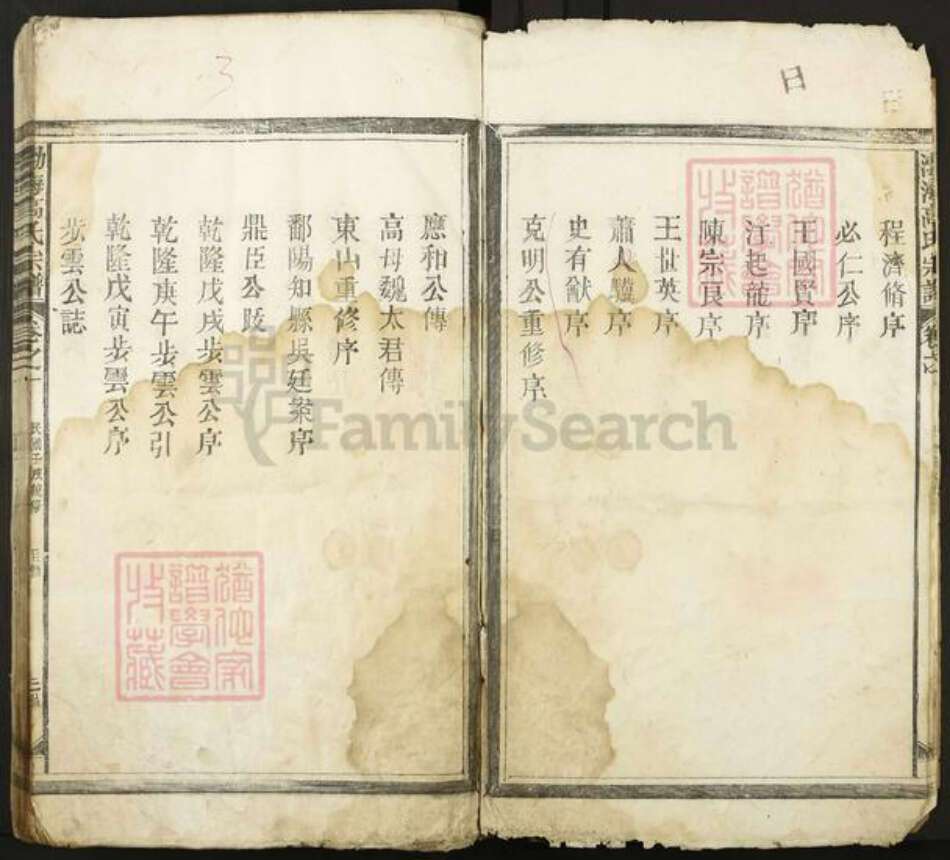 日
渤海高氏宗譜
程濟脩序
必仁公序
王國賢序
江起龍序
陳宗良序
王世英序
蕭人龍序
史有猷序
克明公重修序
應和公傳
高母魏太君傳
東山重修序
鄱陽知縣吳廷桼序
鼎臣公跋
乾隆戊戌步雲公序
乾隆庚午步雲公引
乾隆戊寅步雲公序
步雲公誌
渤海高氏宗譜
卷之一
譜學會
收藏
譜學會
收藏
FamilySearch